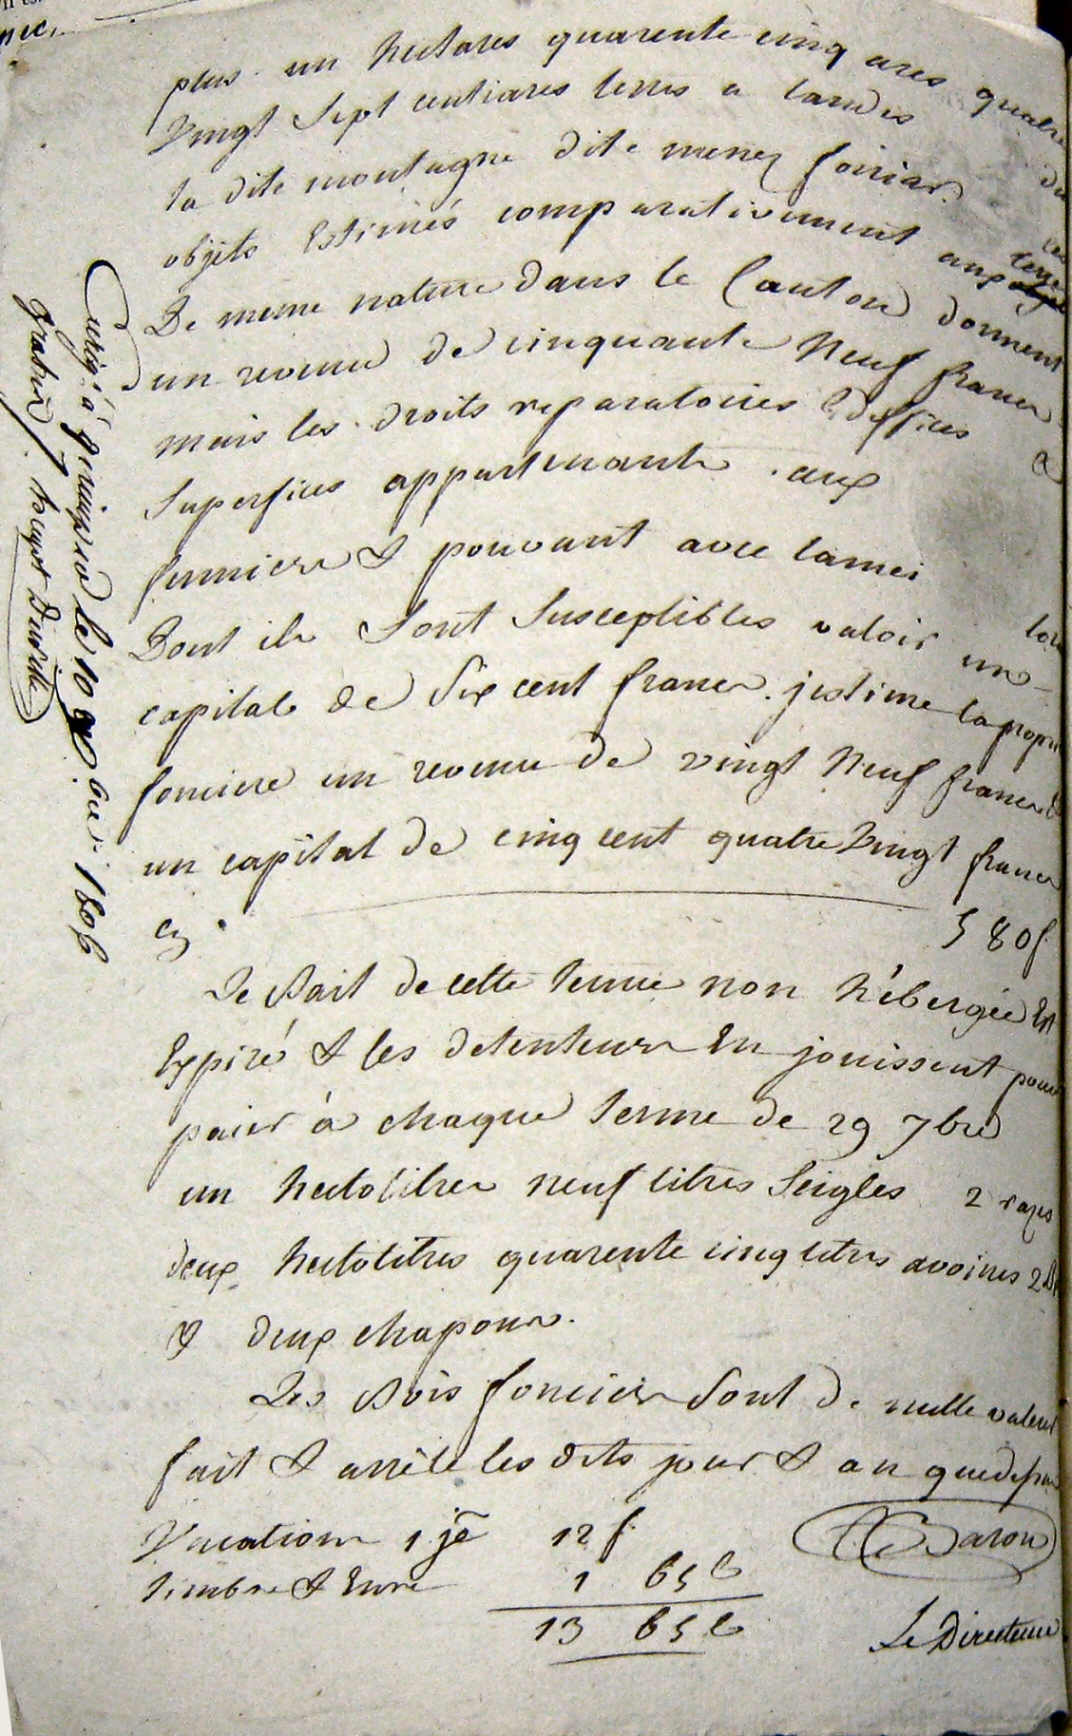 plus un hectares quarente cinq ares quatre
Vingt Sept centiares terres a landes
la dite montagne dite menez
objets Estimés comparativement aux terre
De meme nature dans le Canton donnent
un revenu de cinquante Neuf francs
mais les droits reparatoires Edeffices &
Superfices appartenants aux
fonciers & pouvant avec
Dont ils Sont Susceptibles valoir un
capitale de Six cent francs. jestime la propri
fonciere un revenu de vingt Neuf francs &
un capital de cinq cent quatre Vingt francs
Cy 580f
Le Bail de cette tenue non hébergée Est
Expiré & les detenteurs En jouissent pour
paier à chaque terme de 29 7bre
un hectolitres neuf litres Seigles 2 razes
deux hectolitres quarente cinq litres avoines 2
& deux chapons.
Les Bois fonciers Sont de nulle valeur
fait & arrêté les dits jour & an que
Vacations 1 je 12 f
timbre & Enre 1 65 c
13 65 c
Baron
Le Directeur
Enregé à le 10 bre 1806
gratis